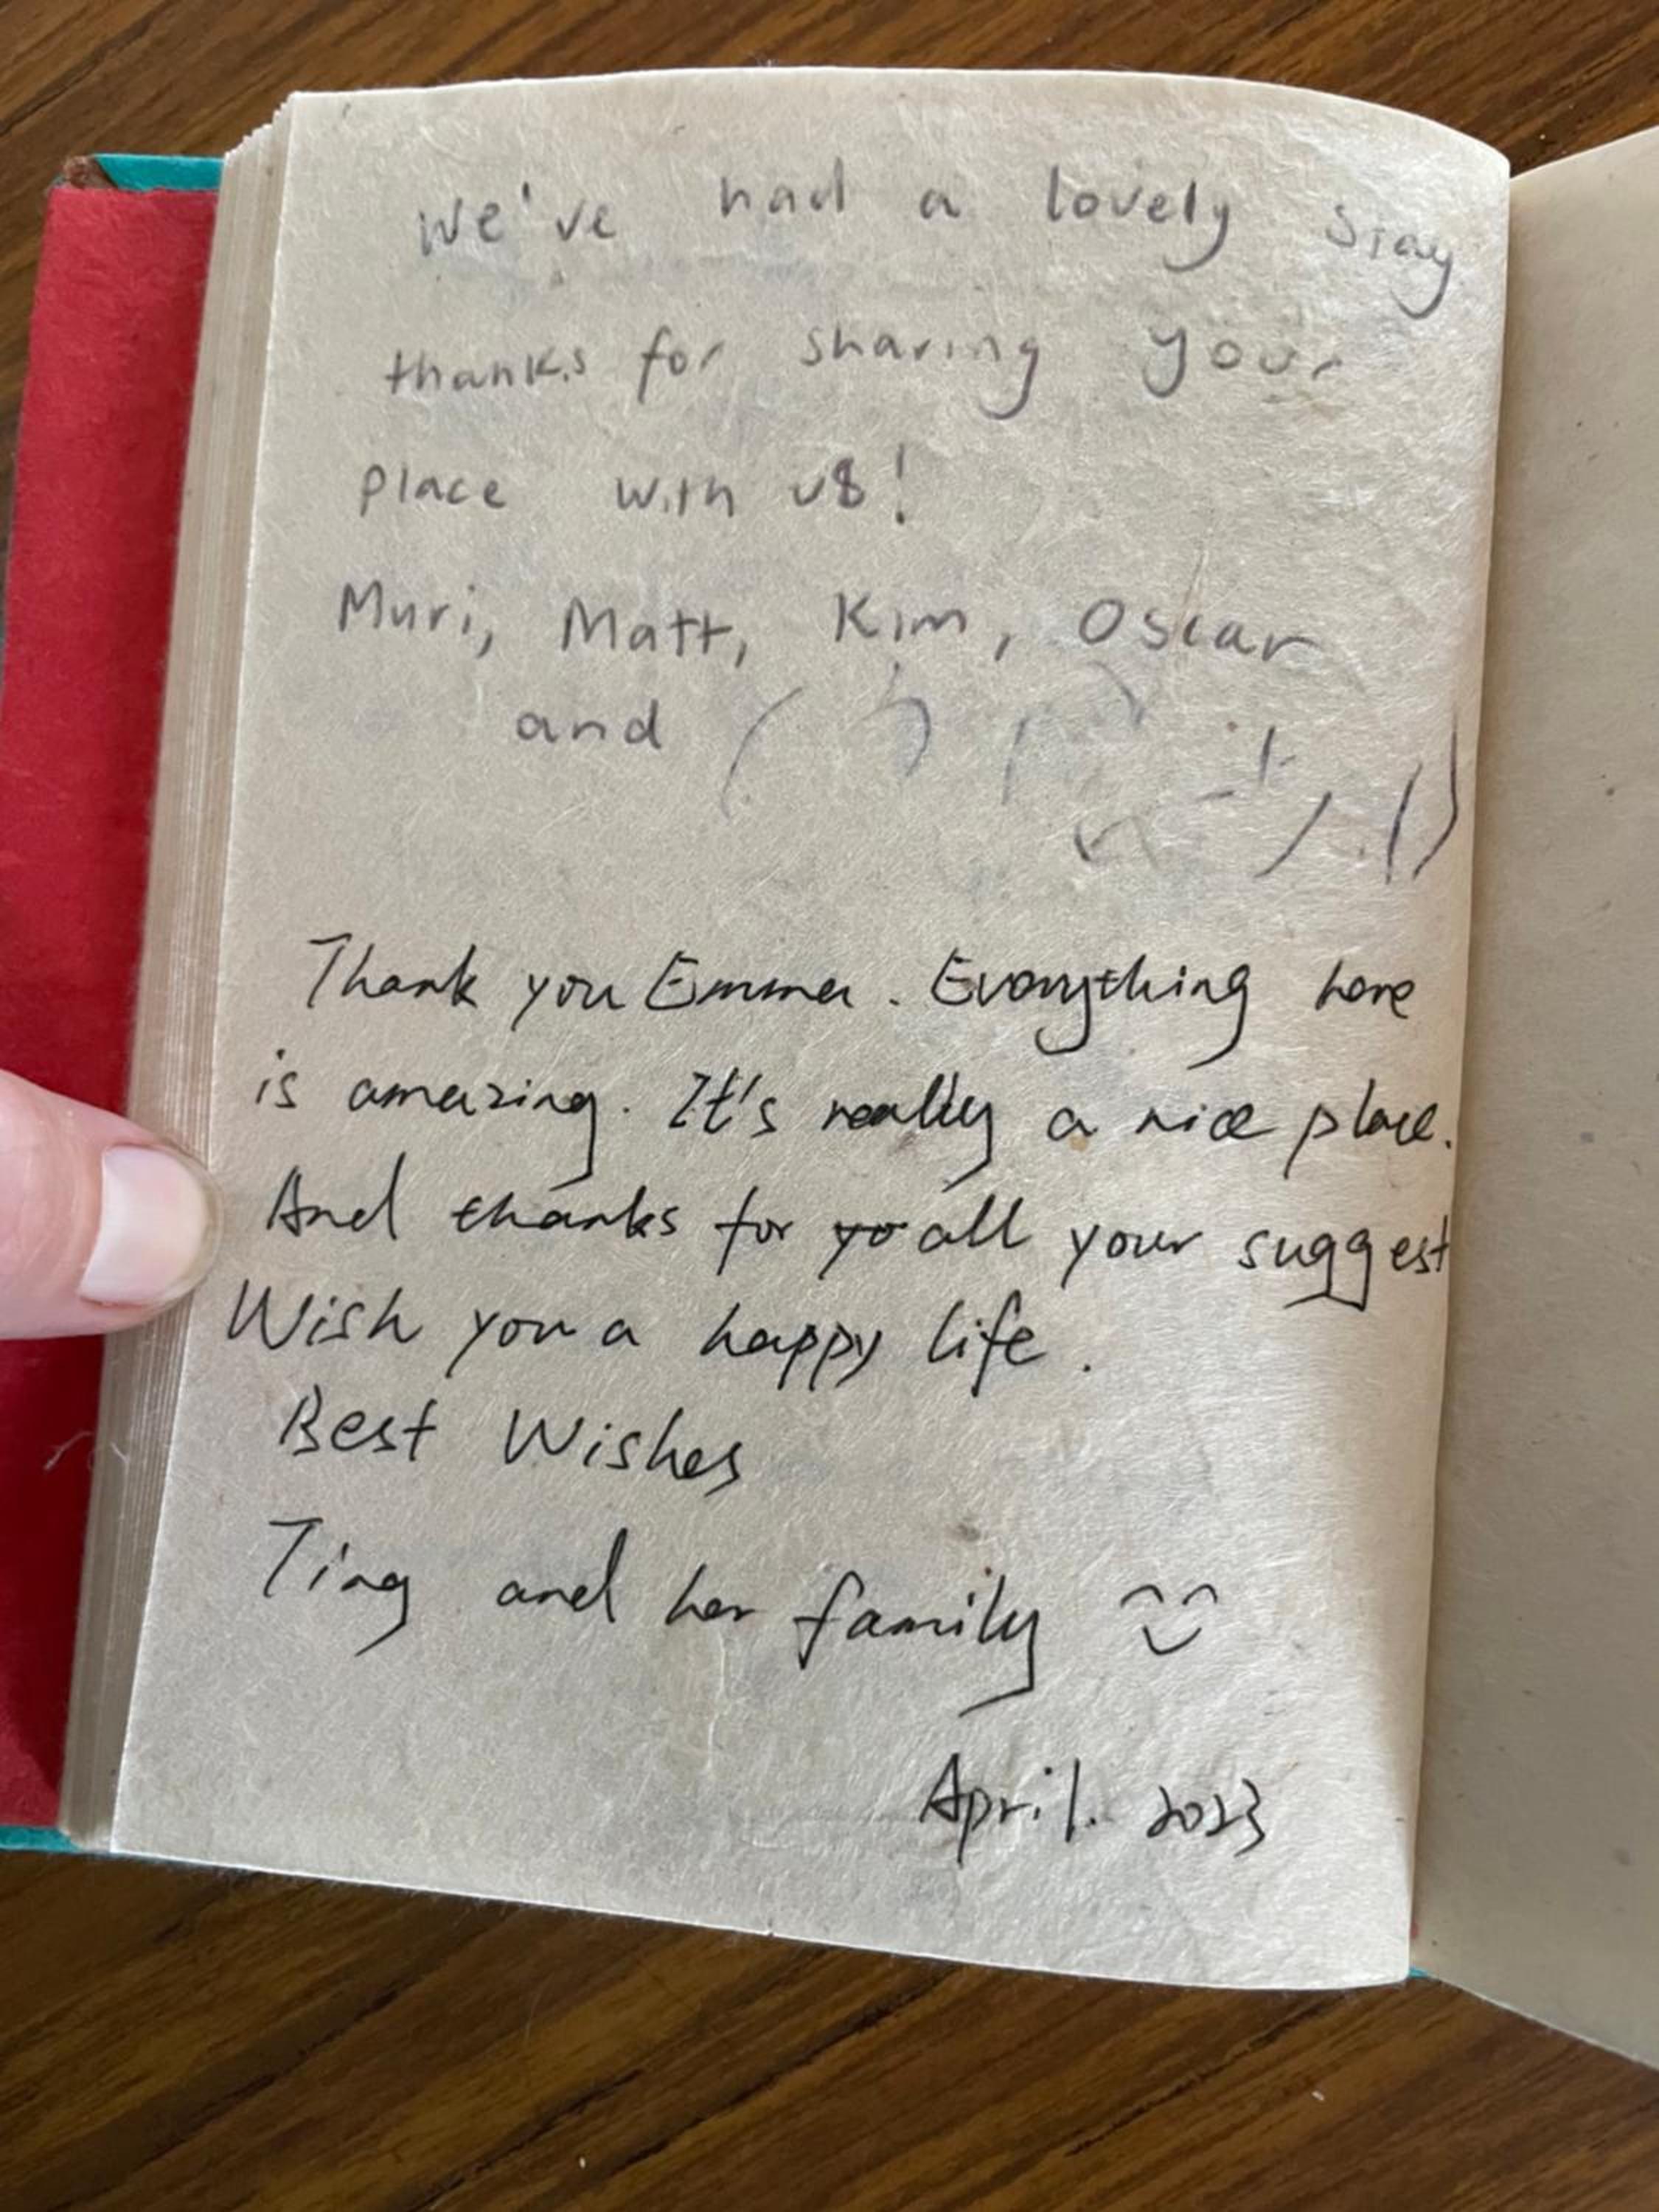 We've had a lovely stay
thanks for sharing your
place with us!
Muri, Matt, Kim, Oscar
and
Thank you Emma. Everything here
is amazing. It's really a nice place.
And thanks for yo all your suggest
Wish you a happy life.
Best Wishes
Ting and her family
April. 2023